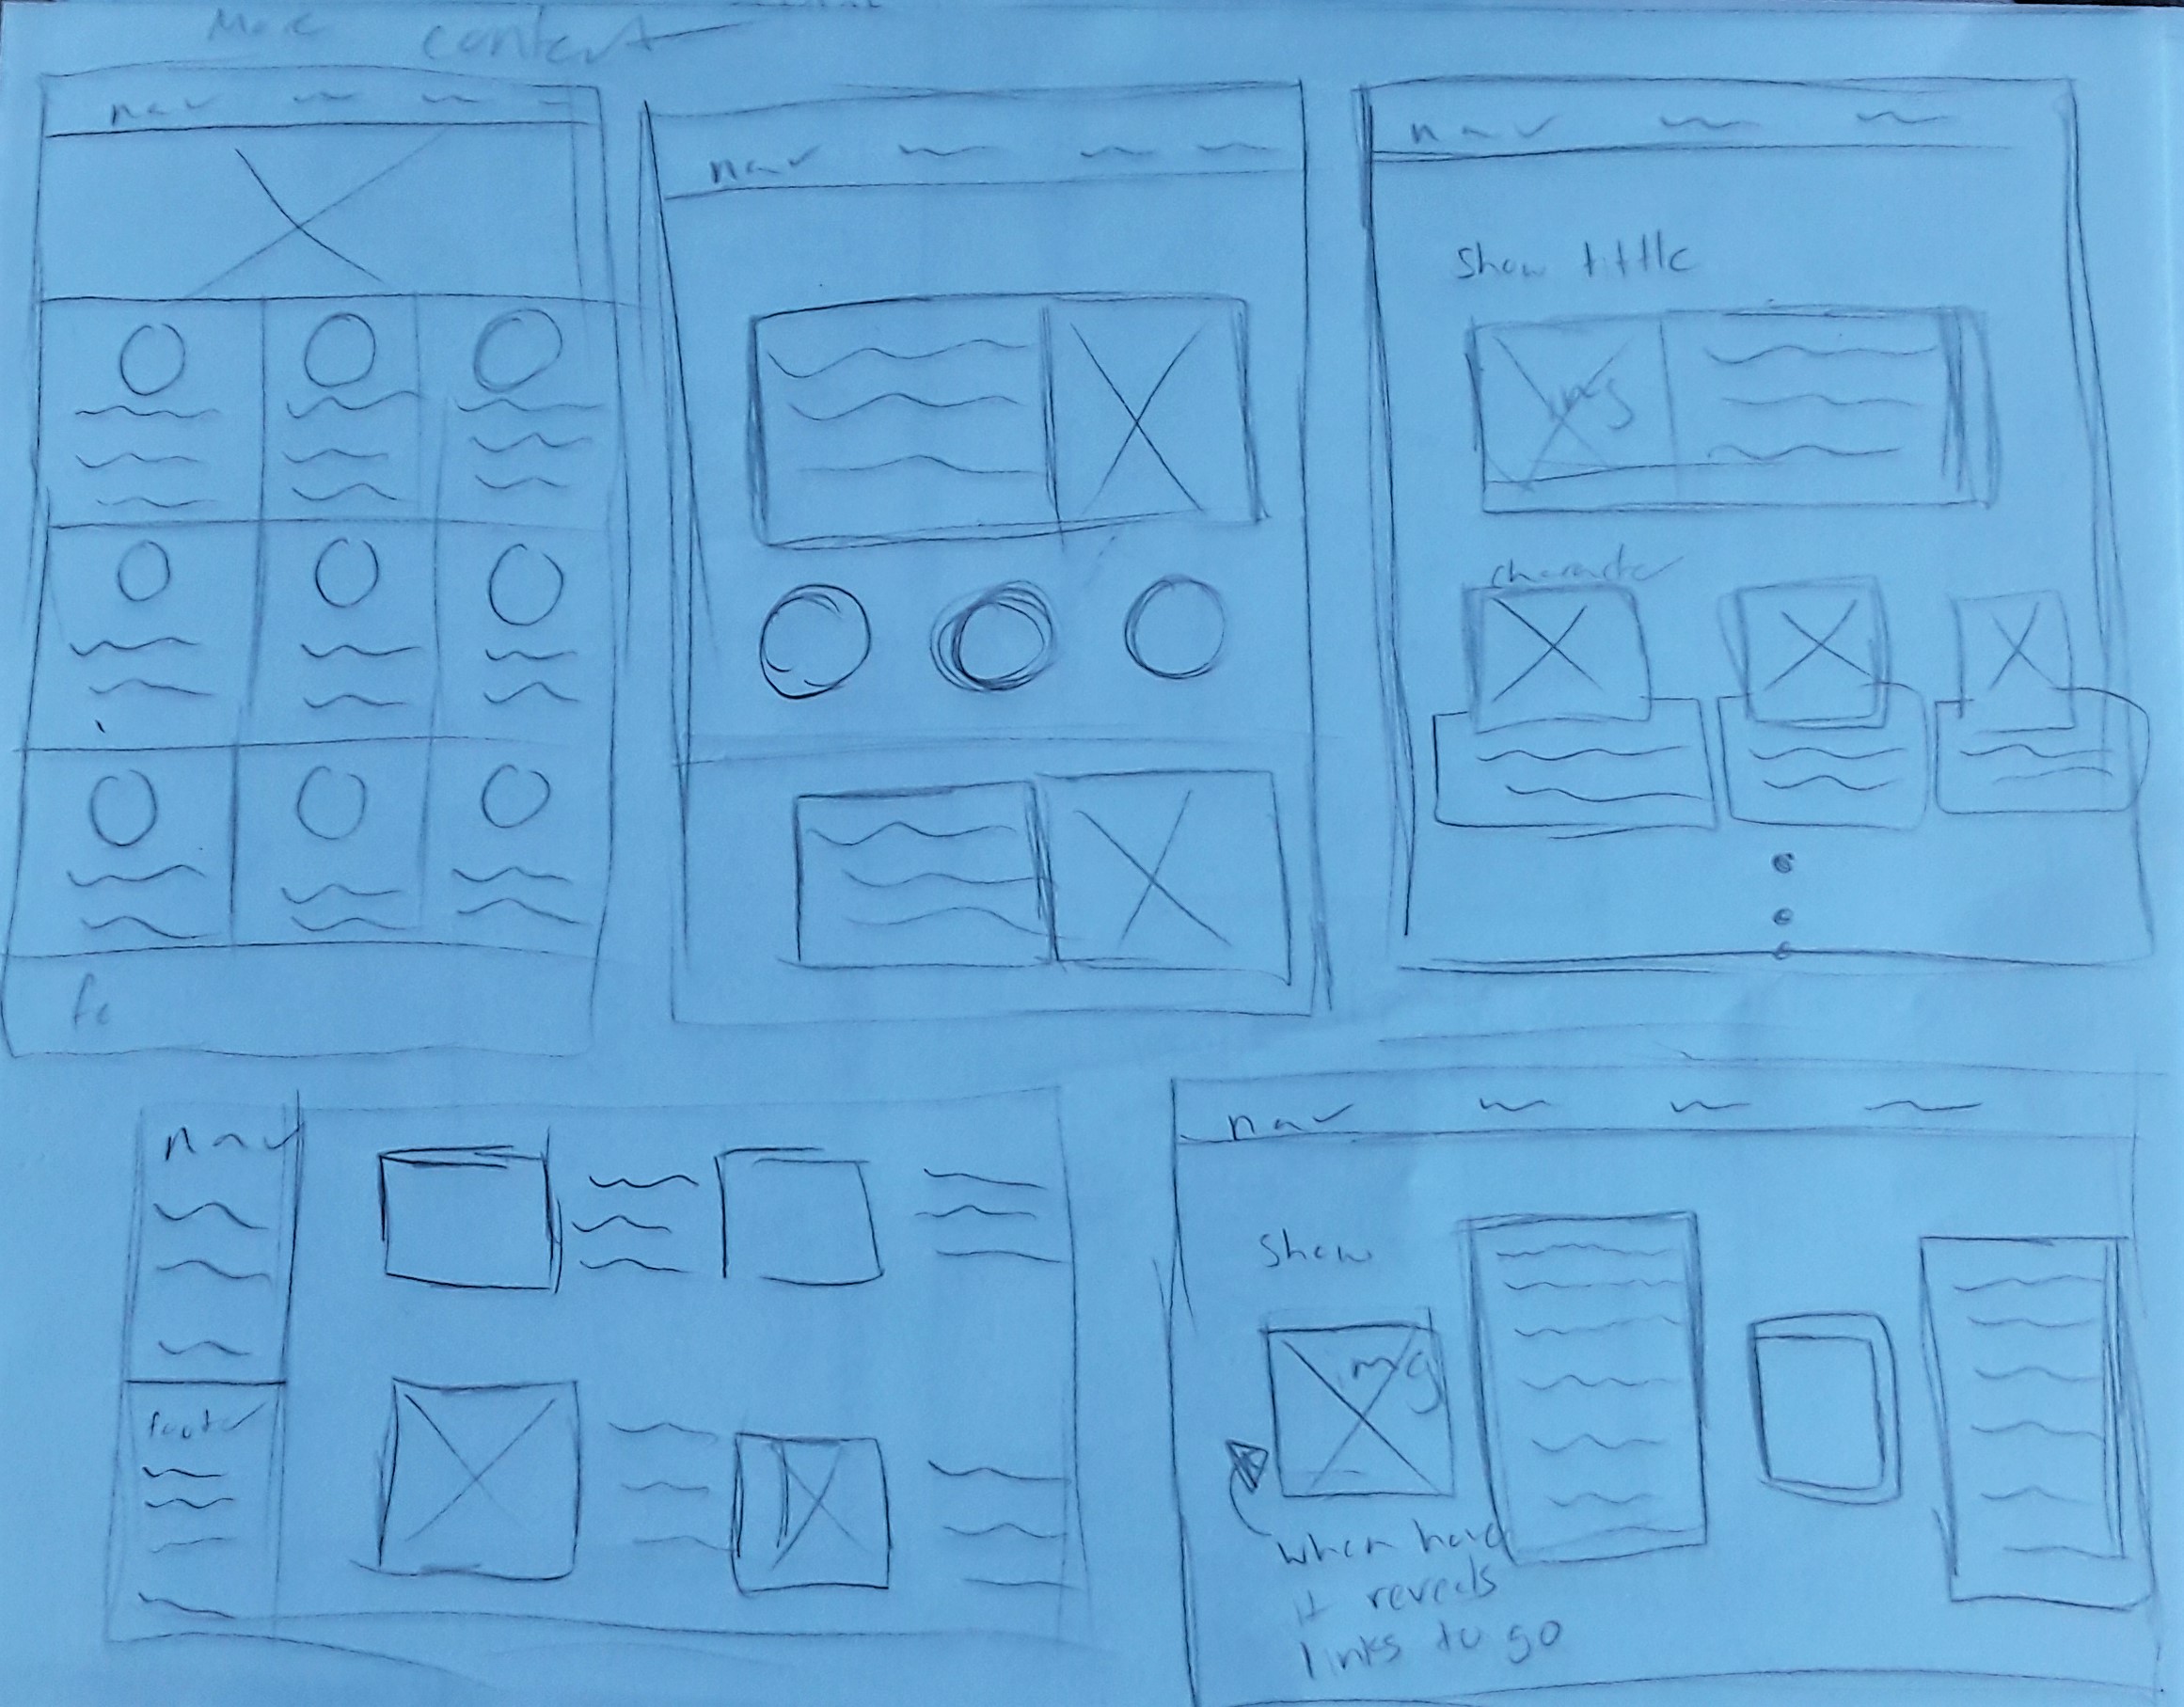 More content
nav
nav
nav
show tittle
img
character
fo
nav
footer
nav
show
img
when hover
it reveals
links to go